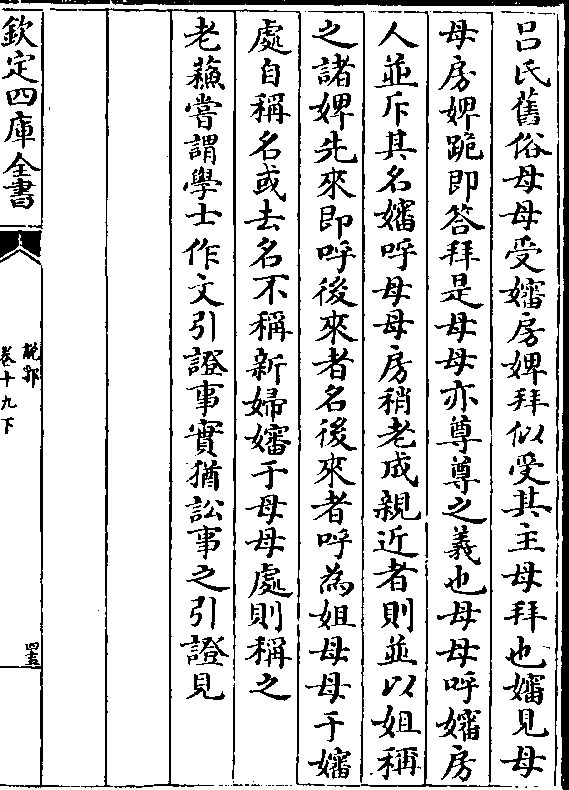 呂氏舊俗母母受嬸房婢拜似受其主母拜也嬸見母
母房婢跪即答拜是母母亦尊尊之義也母母呼嬸房
人並斥其名嬸呼母母房稍老成親近者則並以姐稱
之諸婢先來即呼後來者名後來者呼為姐母母于嬸
處自稱名或去名不稱新婦嬸于母母處則稱之
老蘓嘗謂學士作文引證事實猶訟事之引證見
欽定四庫全書
說郛
卷十九下
四五